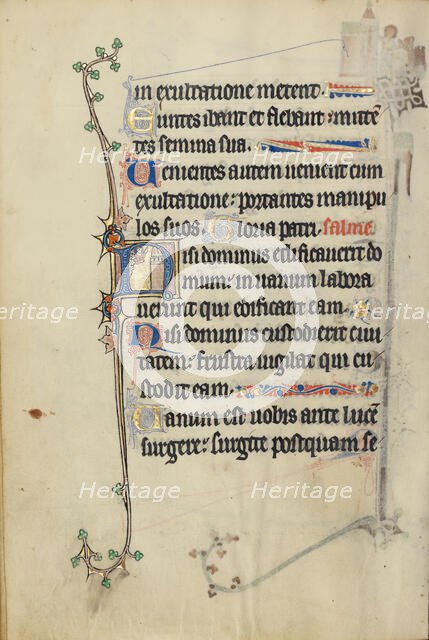 in exultatione metent.
Euntes ibant et flebant: mittē
tes semina sua.
Uenientes autem uenient cum
exultatione: portantes manipu
los suos. Gloria patri. salme.
Nisi dominus edificauerit do
mum: in uanum labora
uerunt qui edificant eam.
Nisi dominus custodierit ciui
tatem: frustra uigilat qui cu
stodit eam.
Uanum est uobis ante lucē
surgere: surgite postquam se
Heritage
Heritage
Heritage
Heritage
Heritage
Heritage
Heritage
Heritage
Heritage